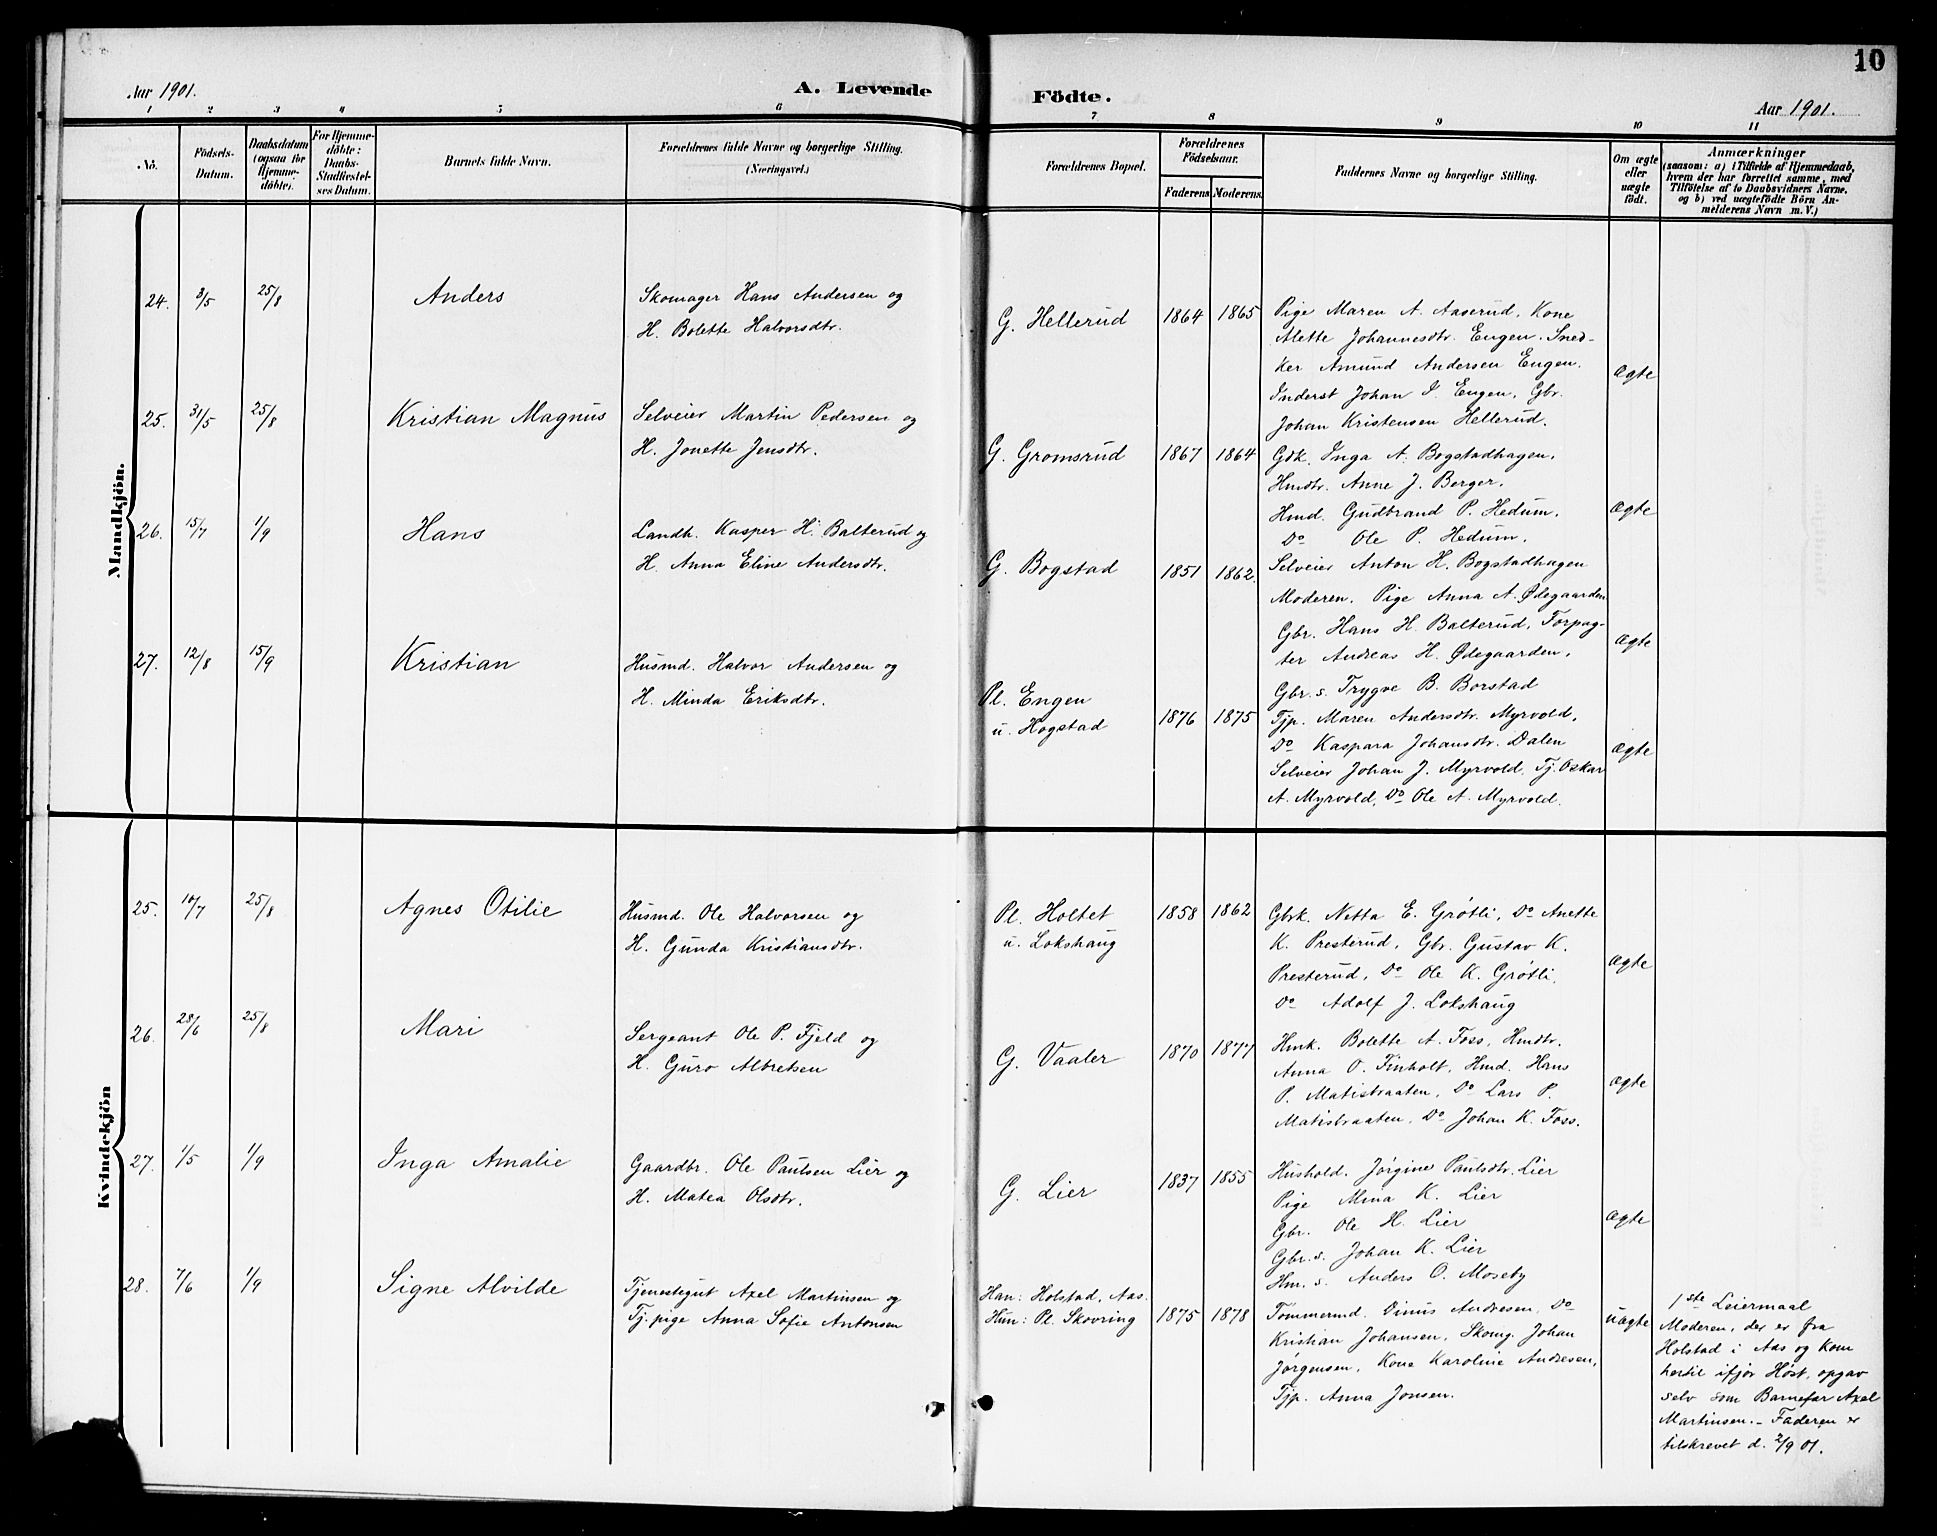 10
Aar 1901.
A. Levende
Födte.
Aar 1901.
1 2 3 4 5 6 7 8 9 10 11
No.
Födsels-
Datum.
Daabsdatum
(ogsaa for
Hjemme-
döbte).
For Hjemme-
döbte:
Daabs-
Stadfæstel-
ses Datum.
Barnets fulde Navn.
Forældrenes fulde Navne og borgerlige Stilling.
(Næringsvei.)
Forældrenes Bopæl.
Forældrenes
Födselsaar.
Faderens
Moderens.
Faddernes Navne og borgerlige Stilling.
Om ægte
eller
uægte
födt.
Anmærkninger
(saasom: a) i Tilfælde af Hjemmedaab,
hvem der har forrettet samme, med
Tilföielse af to Daabsvidners Navne.
og b) ved uægtefödte Börn An-
melderens Navn m. V.)
Mandkjön.
24. 3/5 25/8 Anders
Skomager Hans Andersen og
H. Bolette Halvorsdtr.
G. Hellerud 1864 1865
Pige Maren A. Aaserud, Kone
Alette Johannesdtr. Engen. Sned-
ker Amund Andersen Engen.
Inderst Johan I. Engen, Gbr.
Johan Kristensen Hellerud.
Ægte
25. 31/5 25/8 Kristian Magnus
Selveier Martin Pedersen og
H. Jonette Jensdtr.
G. Gromsrud 1867 1864
Gdk. Inga A. Bogstadhagen.
Hmdtr. Anne J. Berger.
Hmd. Gudbrand P. Hedum.
Do Ole P. Hedum.
Selveier Anton H. Bogstadhagen
Ægte
26. 15/7 1/9 Hans
Landh. Kasper H. Balterud og
H. Anna Eline Andersdtr.
G. Bogstad 1851 1862.
Moderen. Pige Anna A. Ødegaarden
Gbr. Hans H. Balterud, Forpag-
ter Andreas H. Ødegaarden,
Gbr. s. Trygve B. Borstad
Ægte
27. 12/8 15/9 Kristian
Husmd. Halvor Andersen og
H. Minda Eriksdtr.
Pl. Engen
u. Hogstad
1876 1875
Tjp. Maren Andersdtr. Myrvold,
Do Kaspara Johansdtr. Dalen
Selveier Johan J. Myrvold, Tj. Oskar
A. Myrvold, Do Ole A. Myrvold.
Ægte
Kvindekjön
25. 10/7 25/8 Agnes Otilie
Husmd. Ole Halvorsen og
H. Gunda Kristiansdtr.
Pl. Holtet
u. Lokshaug
1858 1862
Gbrk. Netta E. Grøtli, Do Anette
K. Presterud, Gbr. Gustav K.
Presterud, Do Ole K. Grøtli,
Do Adolf J. Lokshaug
Ægte
26. 28/6 25/8 Mari
Sergeant Ole P. Fjeld og
H. Guro Albretsen
G. Vaaler 1870 1877
Hmk. Bolette A. Foss, Hmdtr.
Anna O. Finholt, Hmd. Hans
P. Matisbraaten, Do Lars P.
Matisbraaten, Do Johan K. Foss.
Ægte
27. 1/5 1/9 Inga Amalie
Gaardbr. Ole Paulsen Lier og
H. Matea Olsdtr.
G. Lier 1837 1855
Hushold. Jørgine Paulsdtr. Lier
Pige Mina K. Lier
Gbr. Ole H. Lier
Gbr. s. Johan K. Lier
Hm. s. Anders O. Moseby
Ægte
28. 7/6 1/9 Signe Alvilde
Tjenestegut Axel Martinsen og
Tj.pige Anna Sofie Antonsen
Han: Holstad, Aas.
Hun: Pl. Skovring
1875 1878
Tømmermd. Dinus Andresen, Do
Kristian Johansen, Skomg. Johan
Jørgensen, Kone Karoline Andresen,
Tjp. Anna Jonsen.
Uægte
1ste Leiermaal
Moderen, der er fra
Holstad i Aas og kom
hertil ifjor Høst, opgav
selv som Barnefar Axel
Martinsen. – Faderen er
tilskrevet d. 2/9 01.